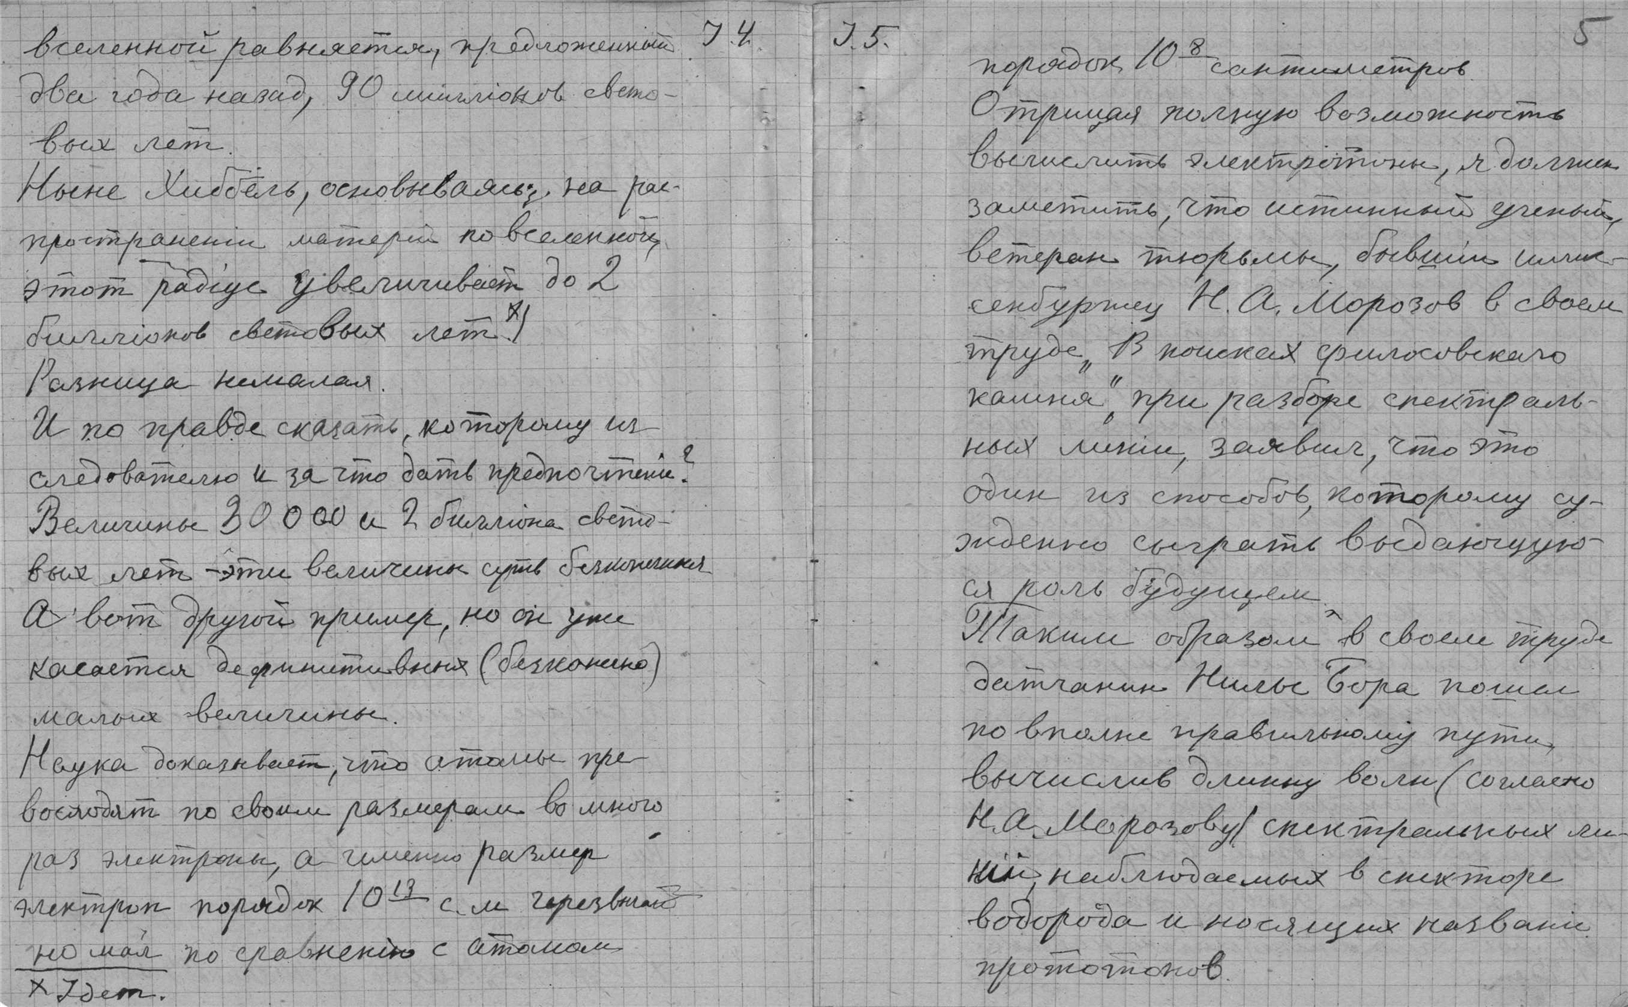 J.4.
вселенной равняется, предложенный
два года назад, 90 миллiонов свето-
вых лет.
Ныне Хиббель, основываясь, на рас-
пространенiи матерiи по вселенной,
этот радiус увеличивает до 2
биллiонов световых лет х)
Разница немалая.
И по правде сказать, которому из
следователю и за что дать предпочтенiе?
Величины 30000 и 2 биллiона свето-
вых лет - эти величины суть безконечныя
А вот другой пример, но он уже
касается дефинитивных (безконечно)
малых величины.
Наука доказывает, что атомы пре-
восходят по своим размерам во много
раз электроны, а именно размер
электрон порядок 10 13 с.м черезвычай
но мал по сравненiю с атомом
х Iдет.
J.5.
5
порядок 10 8 сантиметров
Отрицая полную возможность
вычислить электротоны, я должен
заметить, что истинный ученый,
ветеран тюрьмы, бывшiй шлис-
сенбуржец Н. А. Морозов в своем
труде „В поисках философскаго
камня", при разборе спектраль-
ных линiи, заявил, что это
один из способов, которому су-
ждено сыграть выдающую-
ся роль будущем
Таким образом в своем труде
датчанин Нильс Бора пошел
по вполне правильному пути,
вычислив длинну волн (согласно
Н.А. Морозову) спектральных ли-
нiй, наблюдаемых в спекторе
водорода и носящих названi
прототонов.